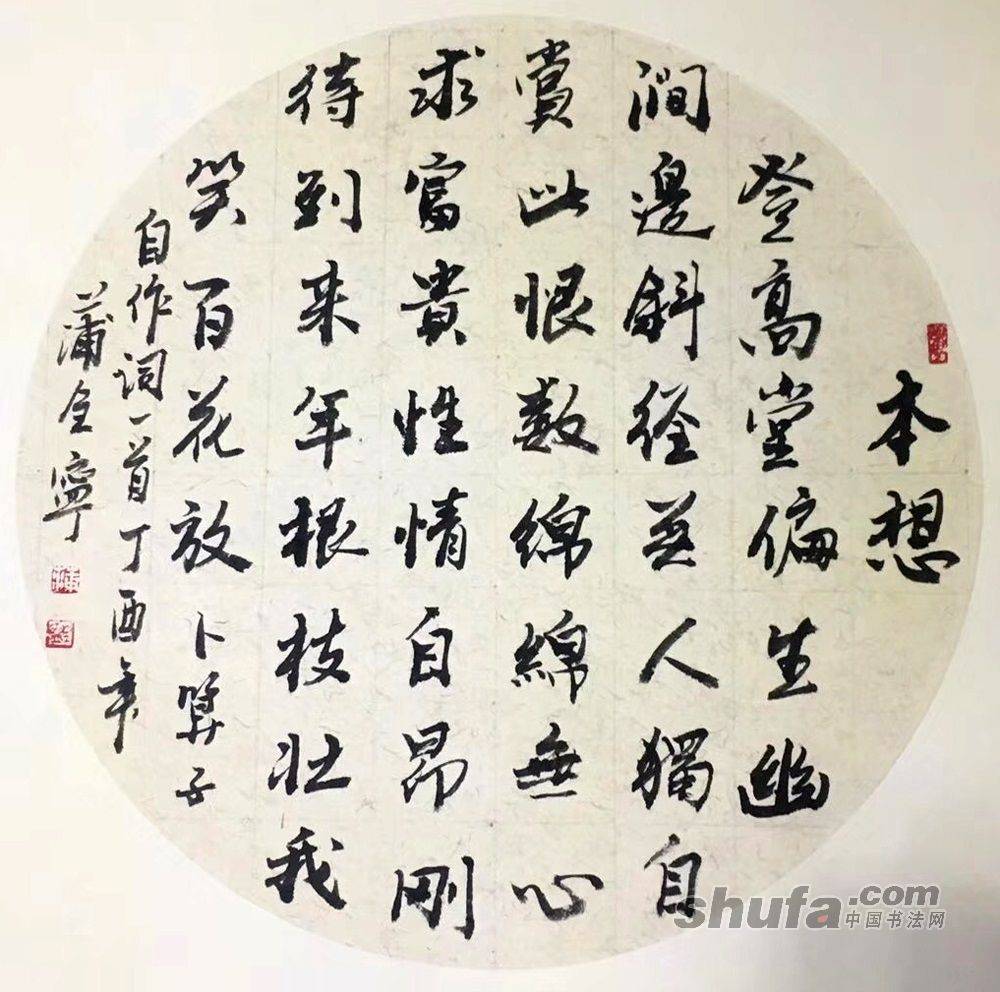 本想
登高堂偏生幽
澗邊斜徑無人獨自
賞此恨數綿綿無心
求富貴性情自昂剛
待到來年根枝壯我
笑百花放卜算子
自作词一首丁酉年
蒲全寧
shufa.com
中国书法网